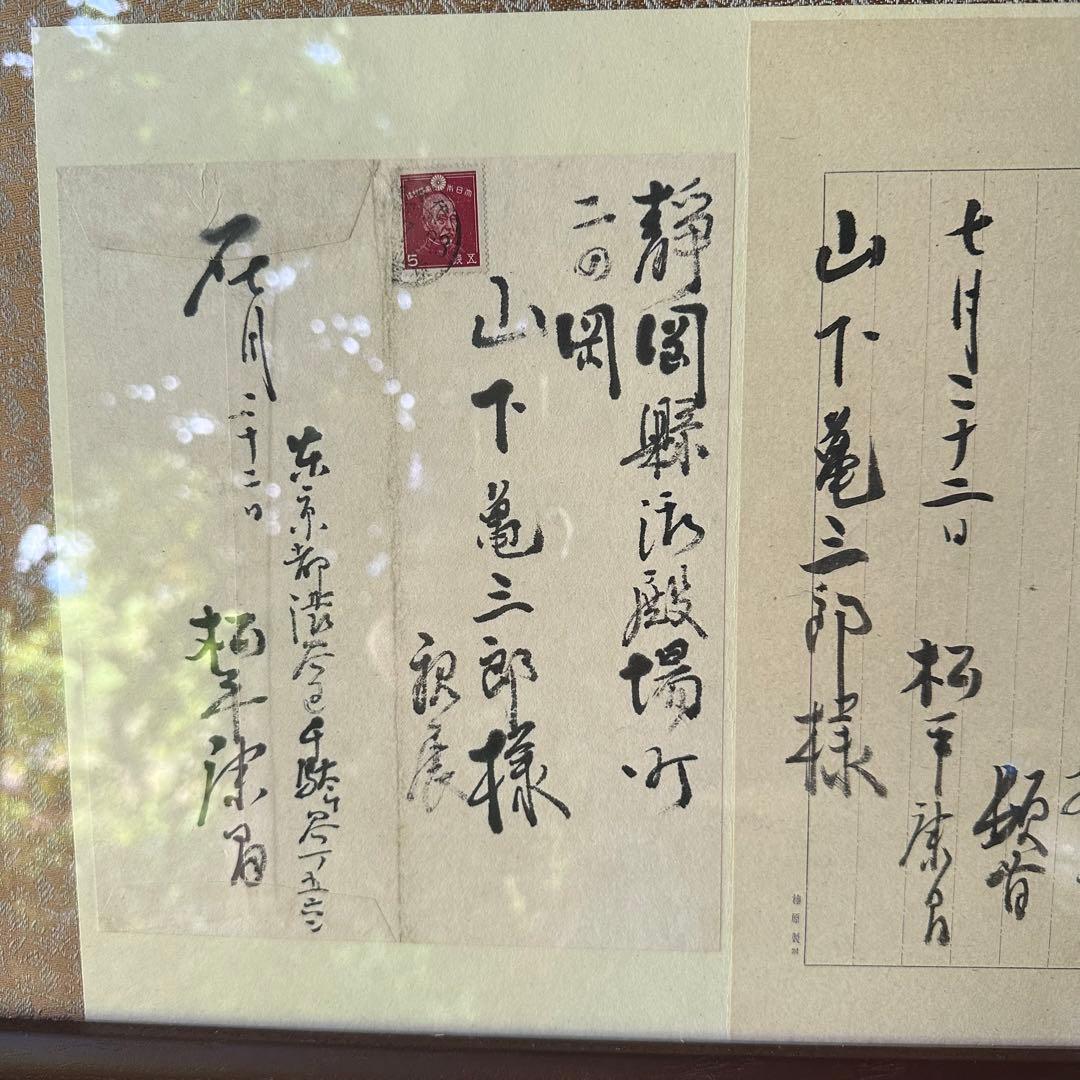 頓首
七月二十二日 松平康昌
山下亀三郎様
榛原製
靜岡縣御殿場町
二の岡
山下亀三郎様
親展
5
五銭
東京都渋谷区千駄ヶ谷一ノ五六二
七月二十二日
松平康昌